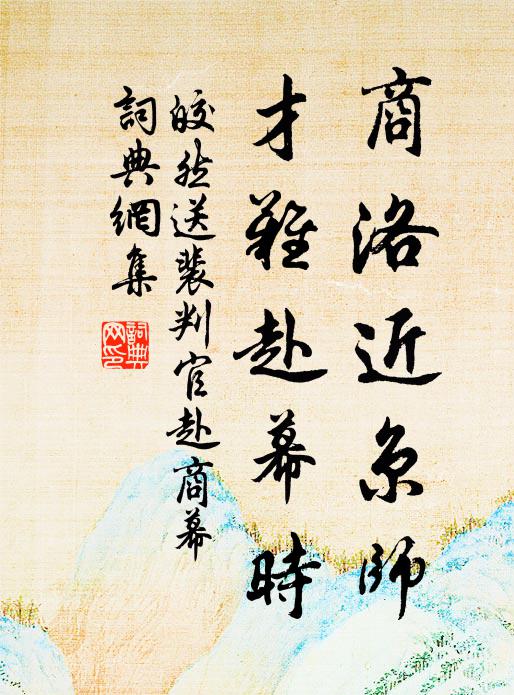 商洛近京師
才難赴幕時
皎然送裴判官赴商幕
詞典網集
詞典網印